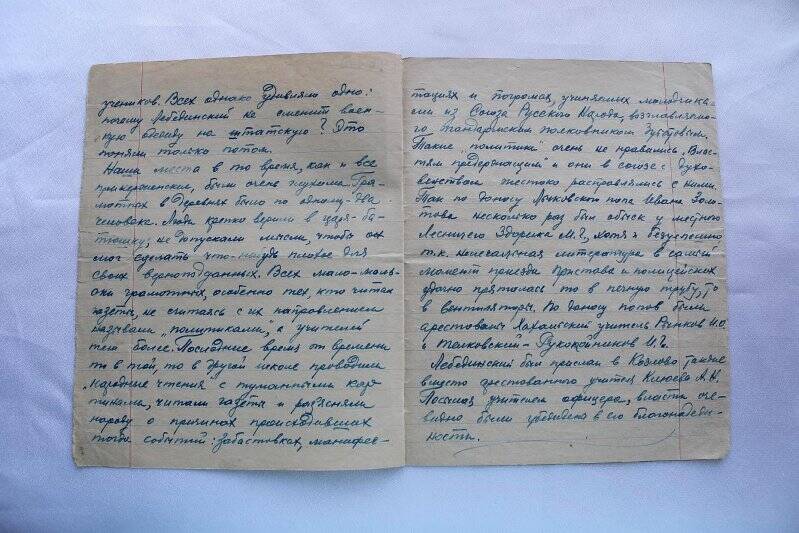 учеников. Всех однако удивляло одно:
почему Лебединский не сменит воен-
ную одежду на штатскую? Это
поняли только потом.
Наши места в то время, как и все
прикерженские, были очень глухими. Гра-
мотных в деревнях было по одному-два
человека. Люди крепко верили в царя-ба-
тюшку, не допускали мысли, чтобы он
мог сделать что-нибудь плохое для
своих верноподданных. Всех мало-маль-
ски грамотных, особенно тех, кто читал
газеты, не считаясь с их направлением
называли „политиками", а учителей
тем более. Последние время от времени
то в той, то в другой школе проводили
„народные чтения" с туманными кар-
тинами, читали газеты и раз'ясняли
народу о причинах происходивших
тогда событий: забастовках, манифес-
тациях и погромах, учиняемых молодчика-
ми из Союза Русского Народа, возглавляемо-
го жандармским полковником
Такие „политики" очень не нравились „Влас-
тям предержащим" и они в союзе с духо-
венством жестоко расправлялись с ними.
Так по доносу попа Ивана Золо-
това несколько раз был обыск у местного
Лесничего М.Г., хотя и безуспешно
т.к. нелегальная литература в самый
момент приезда пристава и полицейских
удачно пряталась то в печную трубу, то
в вентиляторы. По доносу попов были
арестованы учитель Рынков И.О.
и
Лебединский был прислан в Козлово также
вместо арестованного учителя Клюева А.Н.
Посылая учителем офицера, власти оче-
видно были убеждены в его благонадеж-
ности.